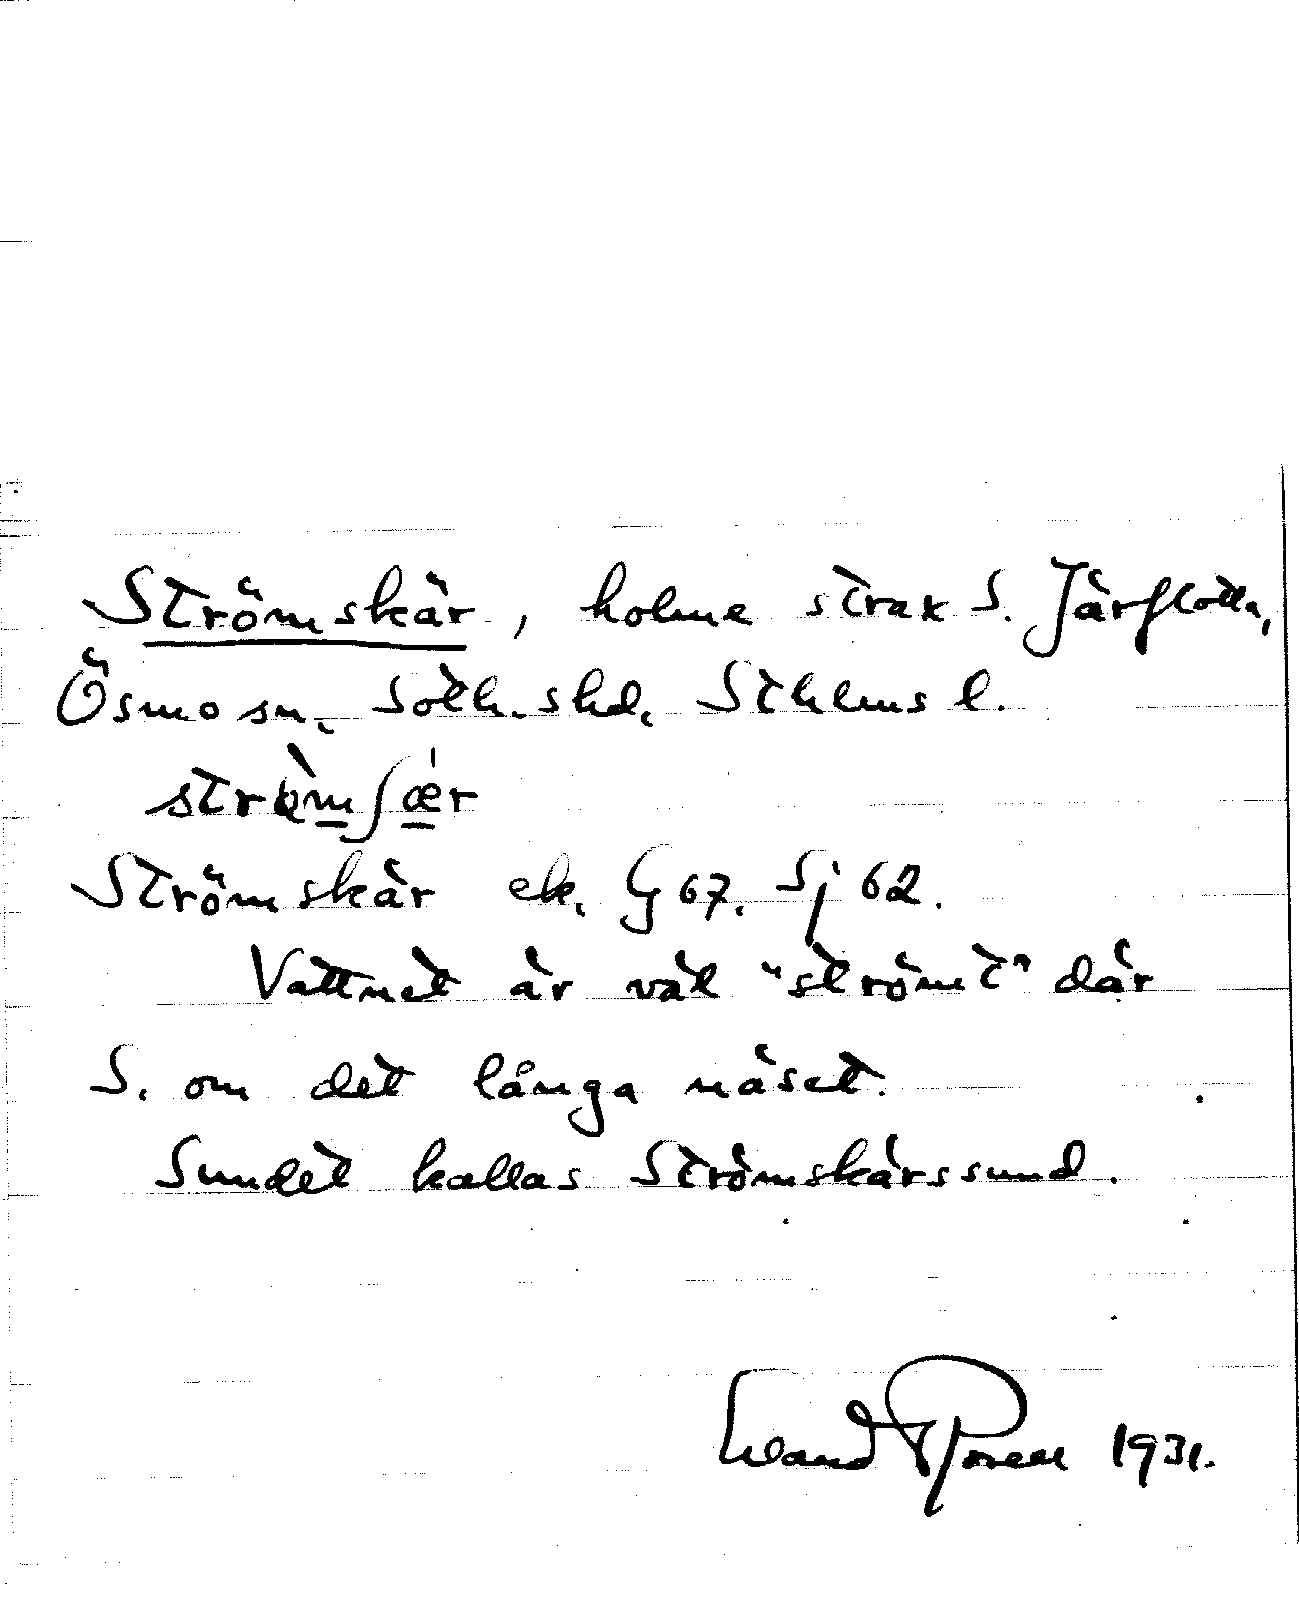 Strömskär, holme strax S. Järflotta,
Ösmo sn, Soth. skd, Sthlms l.
strö̀mʃǽr
Strömskär ek. G 67. Sj 62.
Vattnet är väl "strömt" där
S. om det långa näset.
Sundet kallas Strömskärssund.
1931.